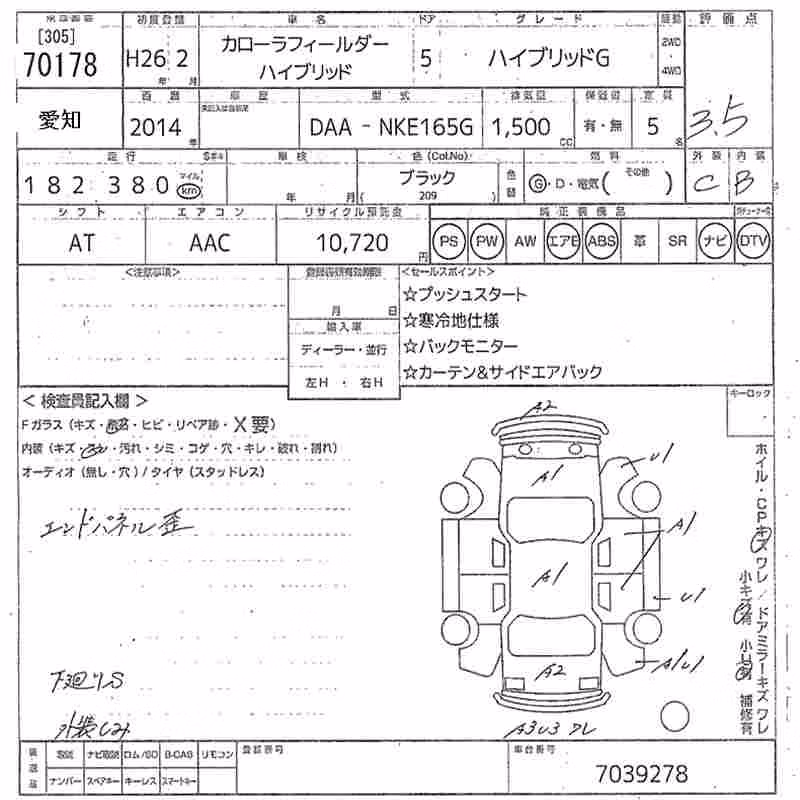 [305]
70178
初度登録
H26 2
年 月
車名
カローラフィールダー
ハイブリッド
ドア
5
グレード
ハイブリッドG
駆動
2WD
・
4WD
評価点
3.5
愛知
2014 年
車歴
型式
DAA - NKE165G
排気量
1,500 CC
保証書
有・無
定員
5 名
走行
182 380
マイル
km
車検
年 月
色(Col.No)
ブラック
( 209 )
色替
燃料
G・D・電気( その他 )
外装 内装
C B
シフト
AT
エアコン
AAC
リサイクル預託金
10,720 円
純正装備品
PS PW AW エアB ABS 革 SR ナビ DTV
<注意事項>
月 日
輸入車
ディーラー・並行
左H・右H
<セールスポイント>
☆プッシュスタート
☆寒冷地仕様
☆バックモニター
☆カーテン&サイドエアバック
キーロック
<検査員記入欄>
Fガラス(キズ・ ・ヒビ・リペア跡・X要)
内装(キズ・ ・汚れ・シミ・コゲ・穴・キレ・破れ・割れ)
オーディオ(無し・穴)/タイヤ(スタッドレス)
エンドパネル歪
下廻りS
外装しみ
A2
A1
U1
A1
A1
U1
A2
A1U1
A3U3
ホイル・CPキズワレ/ドアミラーキズワレ
補修有
取説 ナビ取説 ロム/SD B-CAS リモコン
ナンバー スペアキー キーレス スマートキー
登録番号
車台番号
7039278